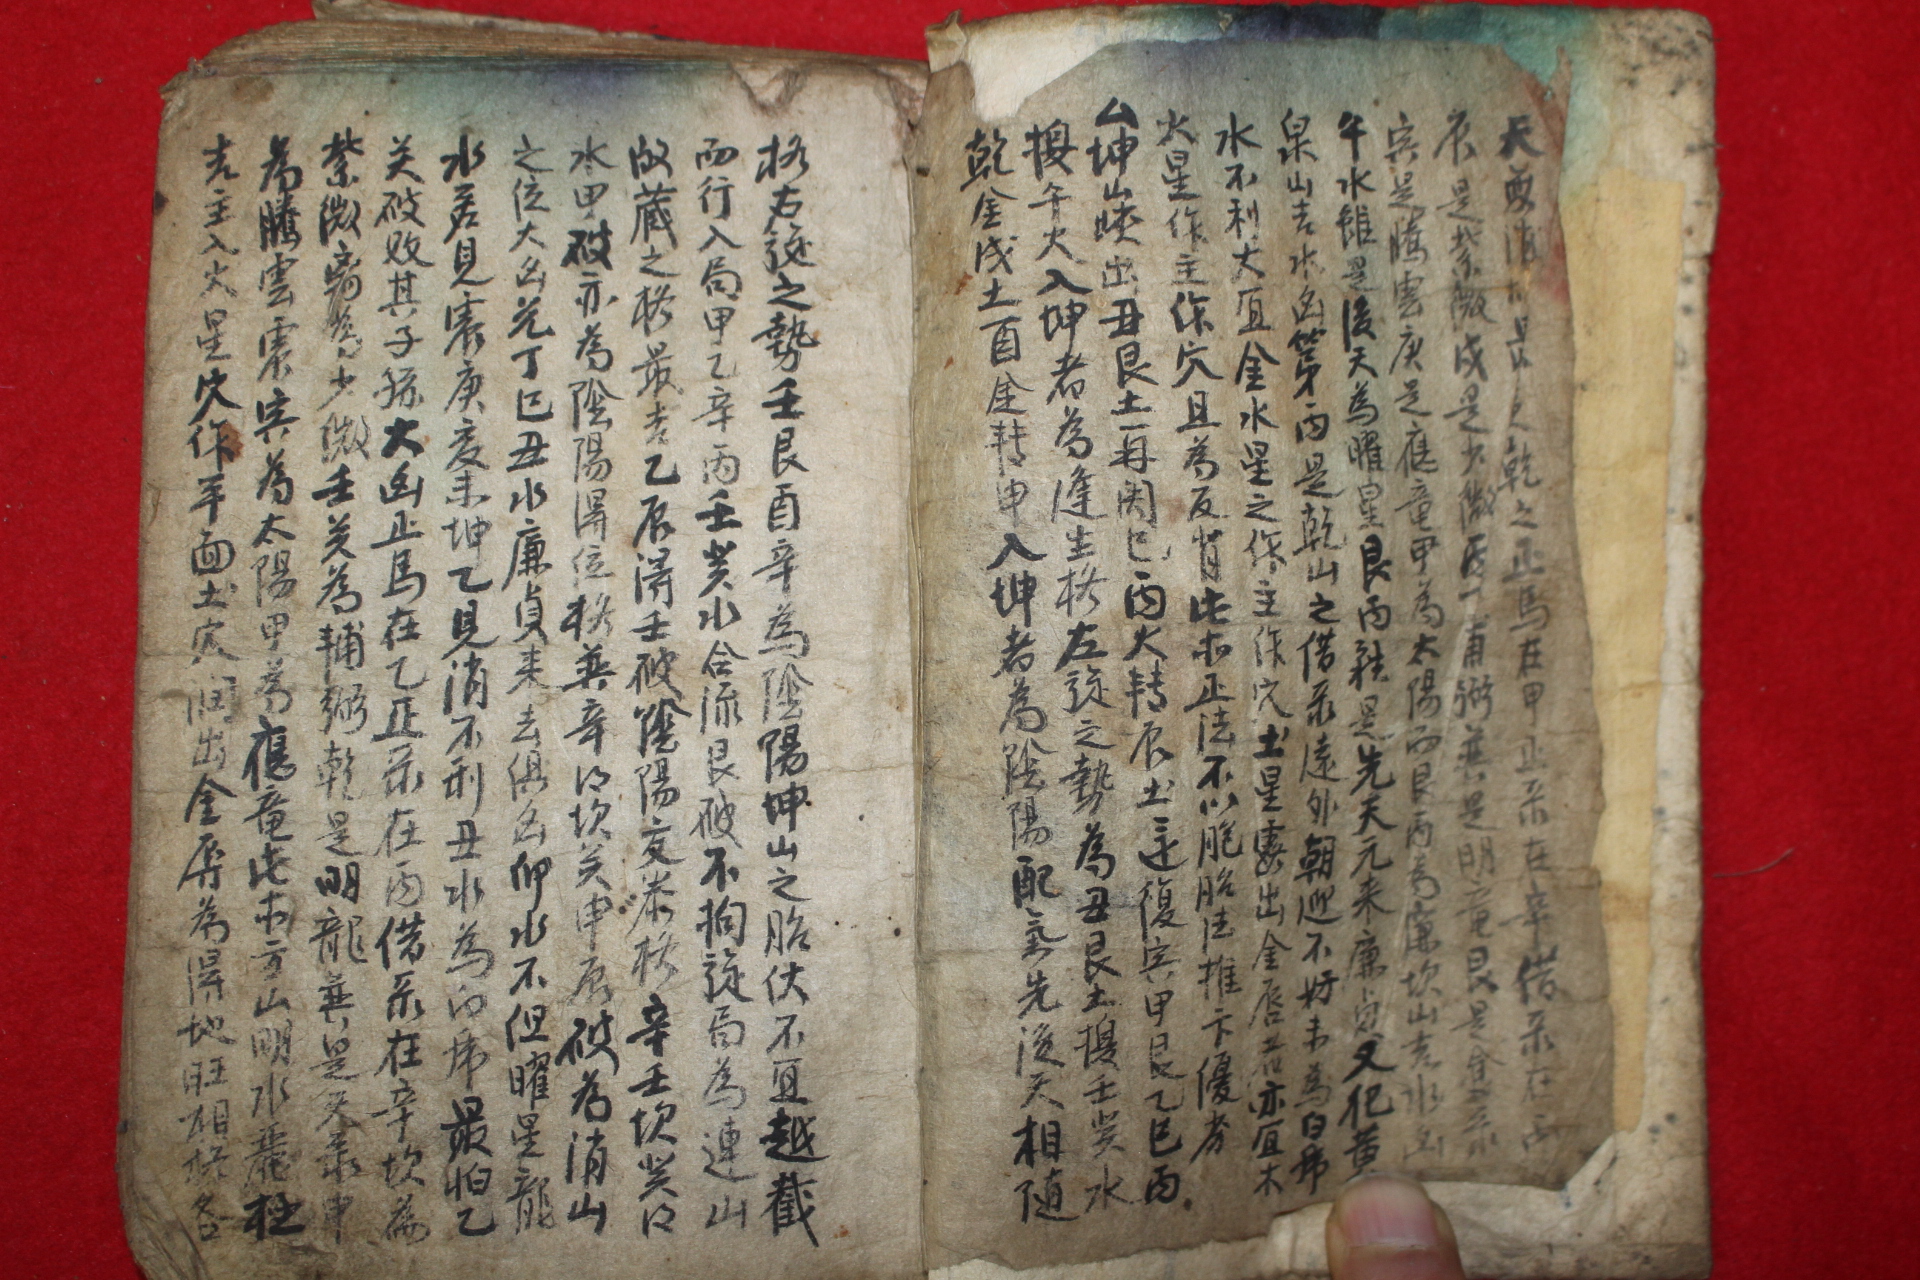 天尊消 是 乾之正馬在甲正祿在辛借祿在丙
辰是紫微戌是少微 丁輔弼巽是明竜艮是
亥是騰雲庚是應竜甲為太陽而艮丙為廉坎山吉水凶
午水雖是後天為曜星艮丙雖是先天元來廉貞又犯黃
泉山吉水凶第丙是乾山之借祿遠外朝迎不妨未為白帍
水不利大宜金水星之作主作穴土星 出金唇 亦宜木
火星作主作穴且為反背此亦正法不以胞胎法推卞優劣
厶坤山峽出丑艮土再関巳丙火轉辰土還復寅甲艮乙巳丙
換午火入坤者為逢生格左旋之勢為丑艮土換壬癸水
乾金戌土酉金轉申入坤者為陰陽配氣先後天相隨
格右旋之勢壬艮酉辛為陰陽坤山之胎伏不宜越截
而行入局甲乙辛丙壬癸水合流艮破不拘旋局為連山
故藏之格最吉乙辰得壬破陰陽交泰格辛壬坎癸得
水甲破亦為陰陽得位格巽辛得坎癸申辰破為消山
之位大凶兌丁巳丑水廉貞來去俱凶卯水不但曜星龍
水若見震庚亥未坤乙見消不利丑水為白帍最怕乙
癸破敗其子孫大凶正馬在乙正祿在丙借祿在辛坎為
紫微離為少微壬癸為輔弼乾是明龍巽是天 申
為騰雲震寅為太陽甲為應竜此亦方山明水麗極
吉主入火星穴作平面土穴 出金唇為得地旺相格各